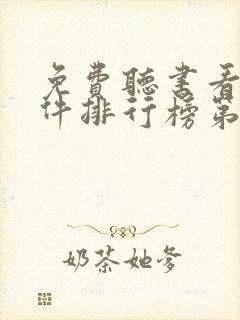 免费聽書看
件排行榜第
奶茶她爹